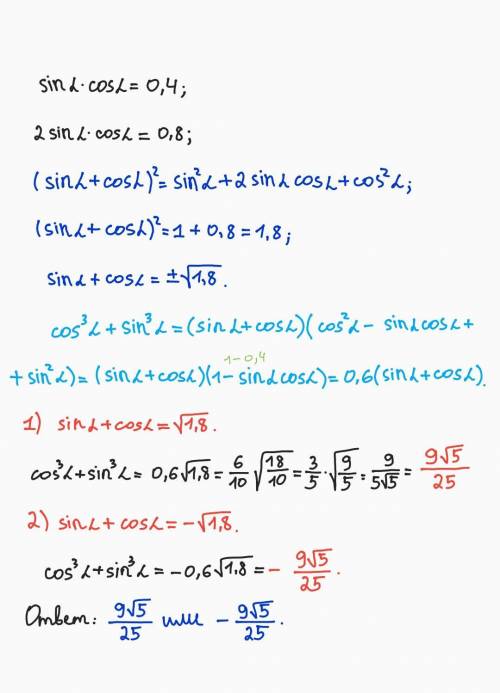 sinα·cosα = 0,4;
2 sinα·cosα = 0,8;
(sinα + cosα)² = sin²α + 2 sinα cosα + cos²α;
(sinα + cosα)² = 1 + 0,8 = 1,8;
sinα + cosα = ±√1,8.
cos³α + sin³α = (sinα + cosα)(cos²α − sinα cosα +
1−0,4
+ sin²α) = (sinα + cosα)(1 − sinα cosα) = 0,6(sinα + cosα).
1) sinα + cosα = √1,8.
cos³α + sin³α = 0,6√1,8 = 6/10 √(18/10) = 3/5 · √(9/5) = 9/(5√5) = 9√5/25
2) sinα + cosα = −√1,8.
cos³α + sin³α = −0,6√1,8 = − 9√5/25.
Ответ: 9√5/25 или − 9√5/25.